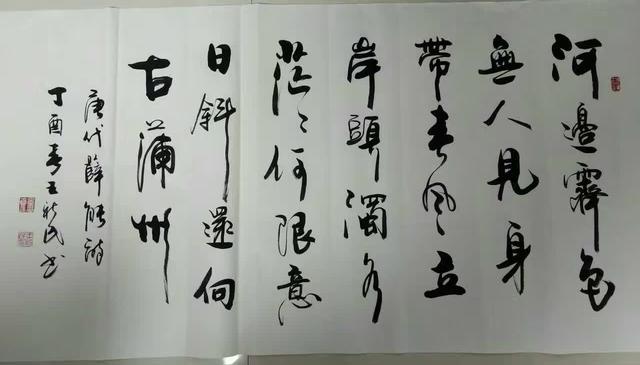 河邊霽色
無人見身
帶春風立
岸頭濁水
茫〻何限意
日斜還向
古蒲州
唐代薛能詩
丁酉春王民书